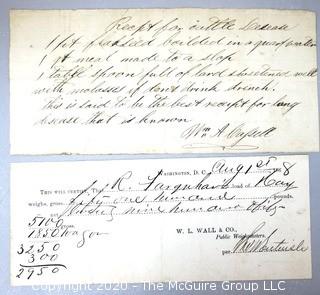 Recept for cattle Disease
1 pt flaxseed boiled in a quart water
1 qt meal made to a slop
1 table spoon full of lard sweetened well
with molasses if dont drink drench.
this is said to be the best receipt for lung
disease that is known
Wm. A.
WASHINGTON, D. C. Aug 1st 8
THIS WILL CERTIFY, That R. Farquhars load of Hay
weighs, gross, fifty one hundred pounds.
net
5100 gross.
1850 wagon
3250
300
2950
W. L. WALL & CO.,
Public Weighmasters.
per
Copyright © 2020 - All Rights Reserved